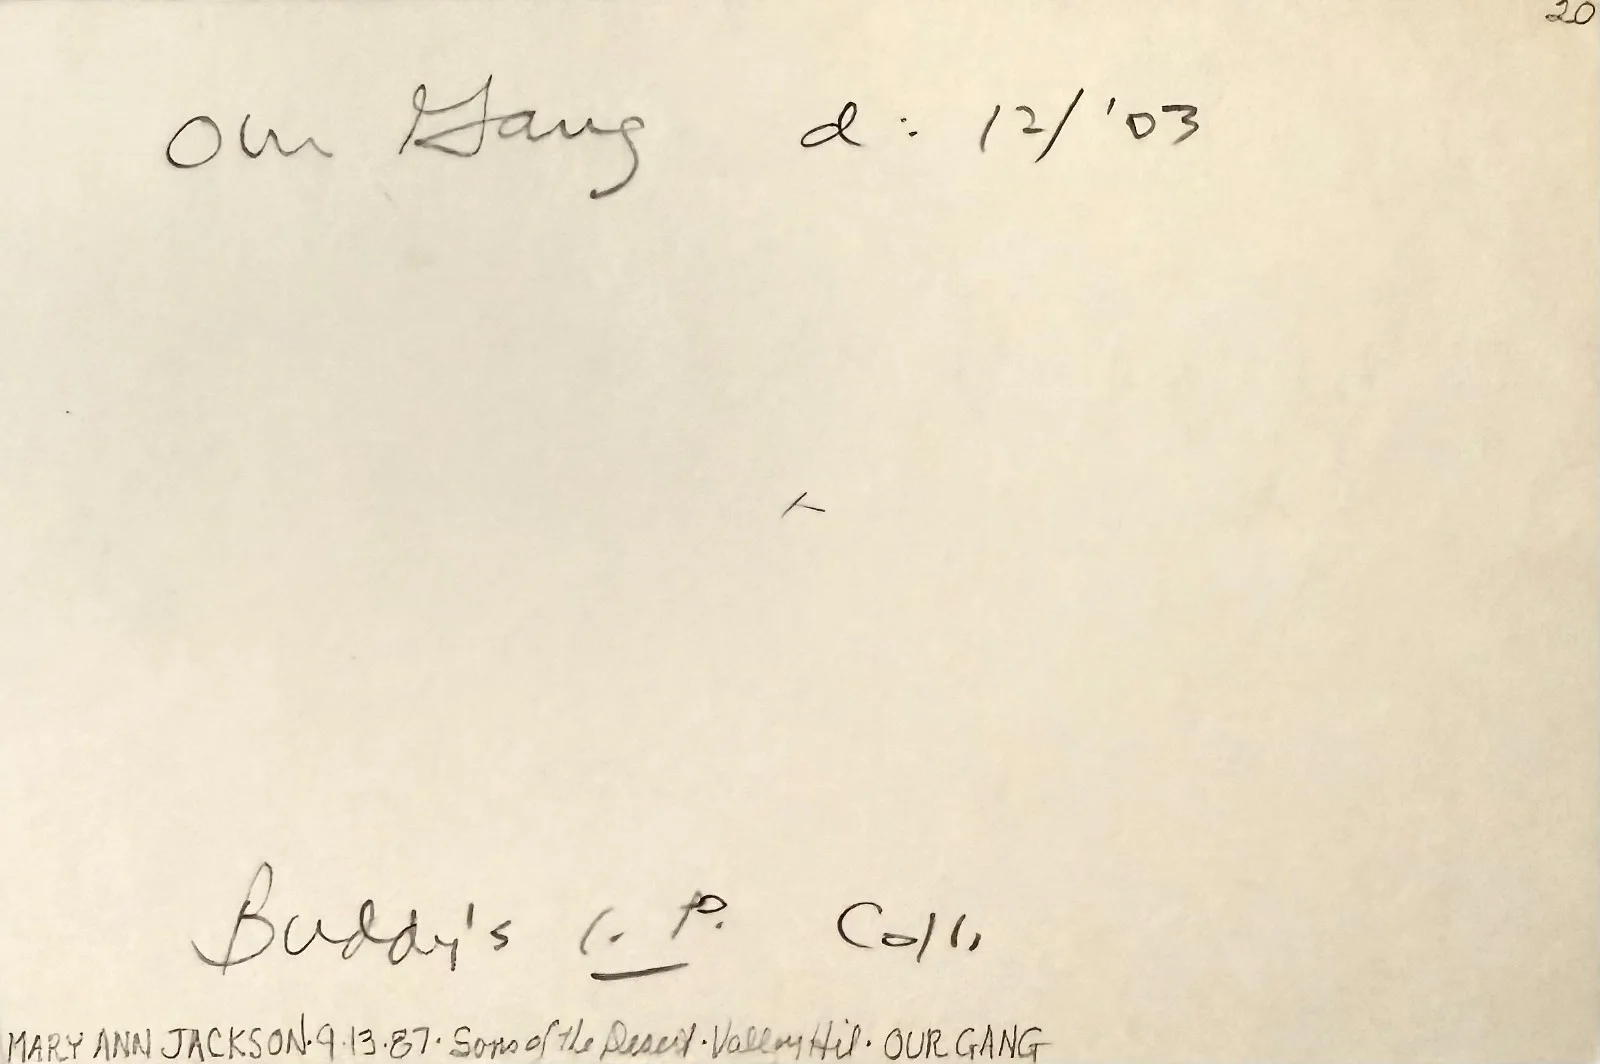 20
Our Gang d: 12/'03
Buddy's P. Coll.
MARY ANN JACKSON·9·13·87· Sons of the Desert · Valley Hil· OUR GANG